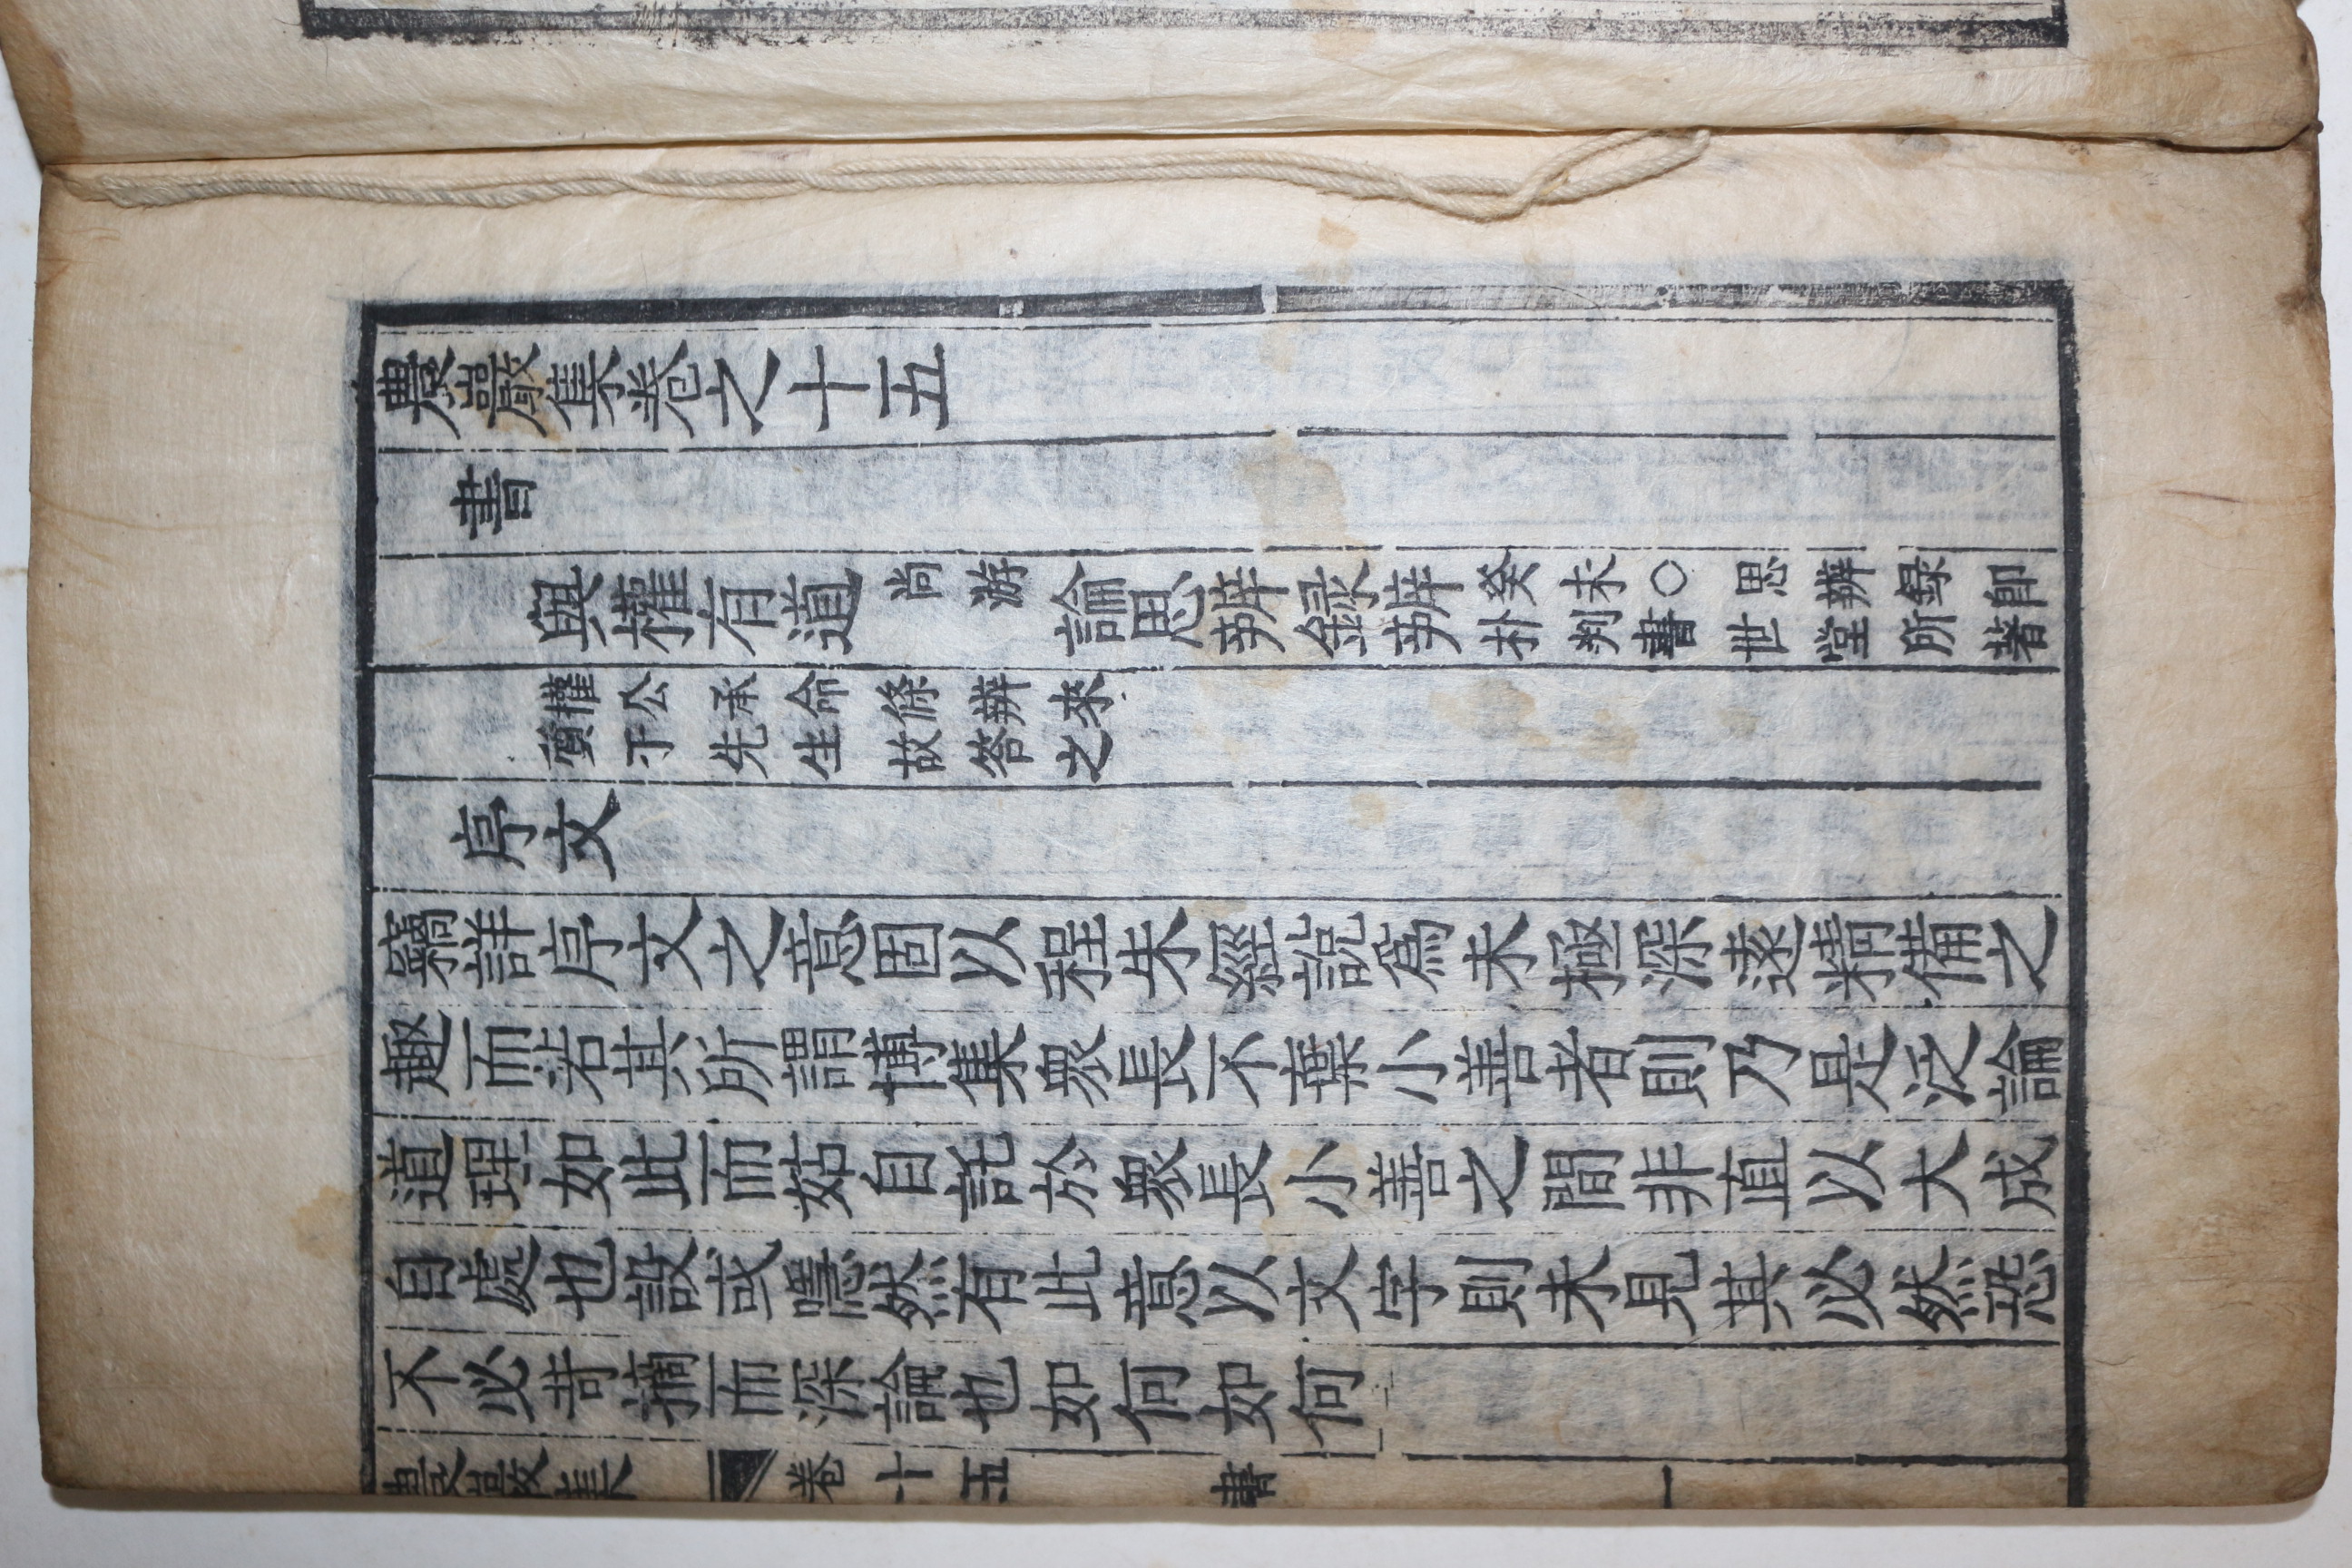 農巖集卷之十五
書
與權有道尙游論思辨錄辨癸未○思辨錄卽朴判書世堂所著
權公承命條辨來質于先生故答之
序文
竊詳序文之意固以程朱經說爲未極深遠精備之
趣而若其所謂博集衆長不棄小善者則乃是泛論
道理如此而姑自託於衆長小善之間非直以大成
自處也設或隱然有此意以文字則未見其必然恐
不必苛摘而深論也如何如何
農巖集 卷十五 書 一